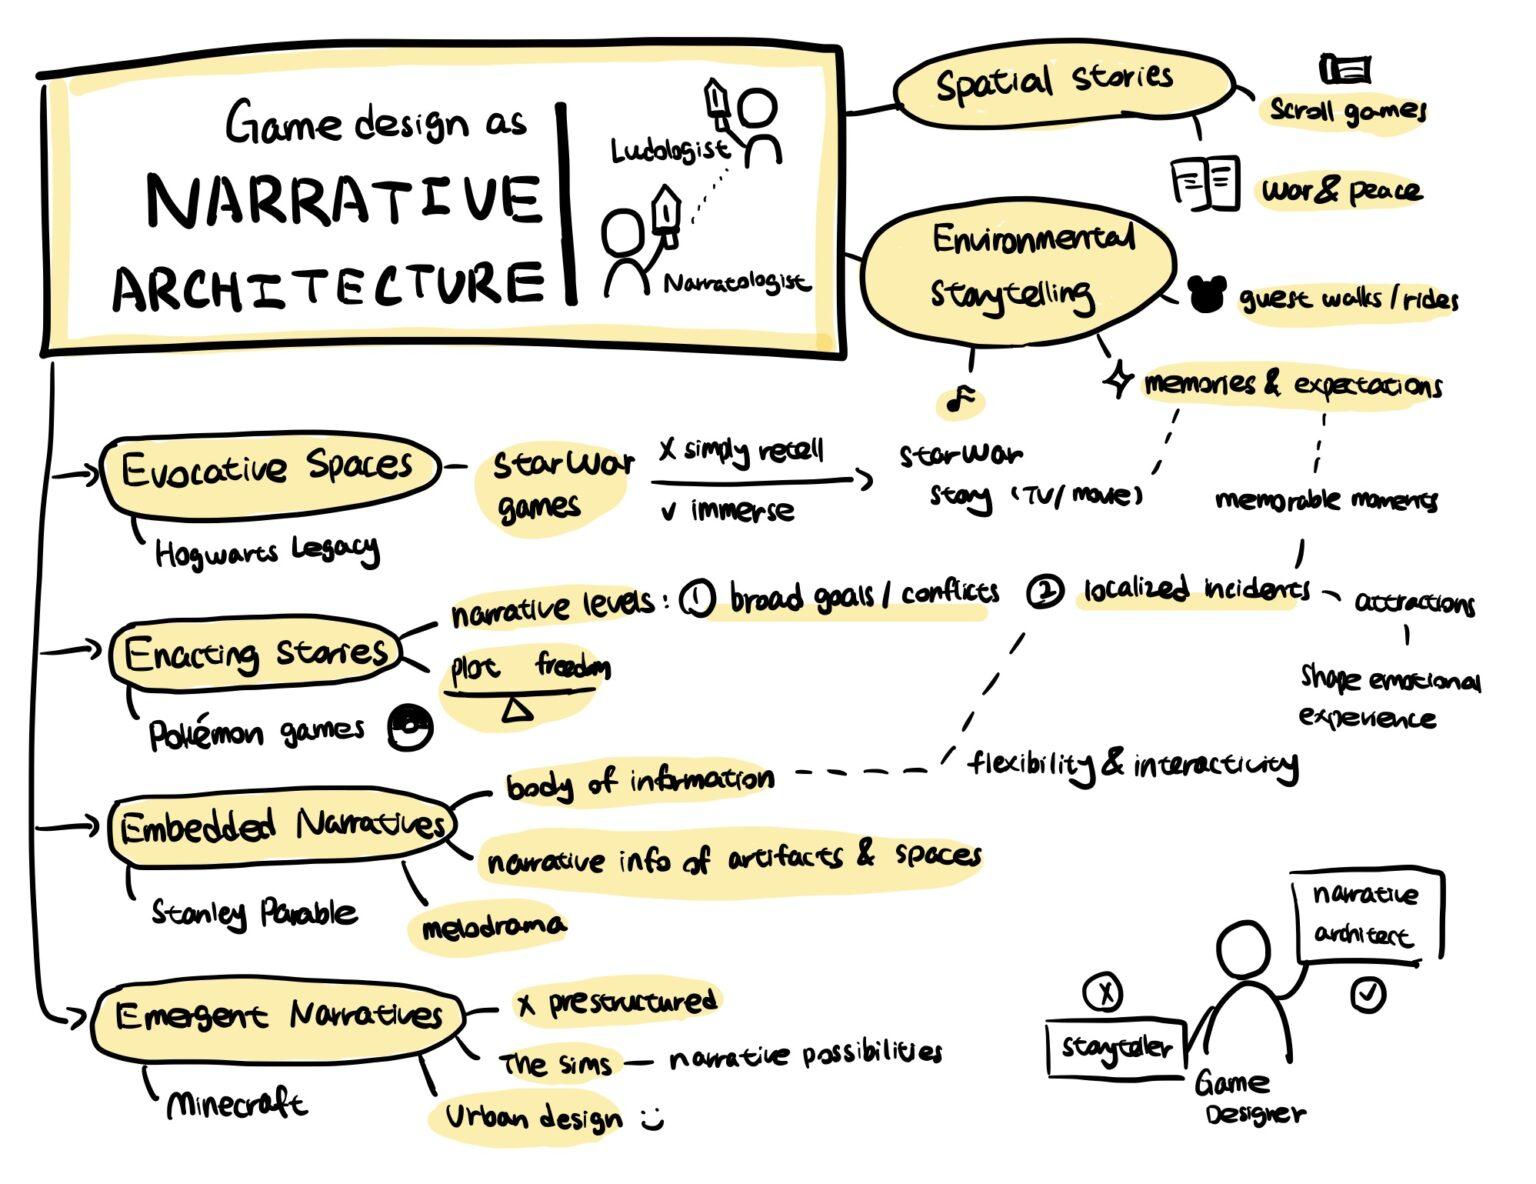 Game design as
NARRATIVE
ARCHITECTURE
Ludologist
Narratologist
Spatial Stories
Scroll games
War & peace
Environmental
Storytelling
guest walks/rides
memories & expectations
Evocative Spaces
StarWar
games
X simply retell
✓ immerse
StarWar
Story (TV/movie)
memorable moments
Hogwarts Legacy
Enacting Stories
narrative levels: ① broad goals/conflicts
② localized incidents
attractions
shape emotional
experience
plot freedom
Pokémon games
Embedded Narratives
body of information
flexibility & interactivity
narrative info of artifacts & spaces
Stanley Parable
melodrama
Emergent Narratives
X prestructured
The Sims
narrative possibilities
Minecraft
Urban design :)
narrative
architect
✓
X
storyteller
Game
Designer